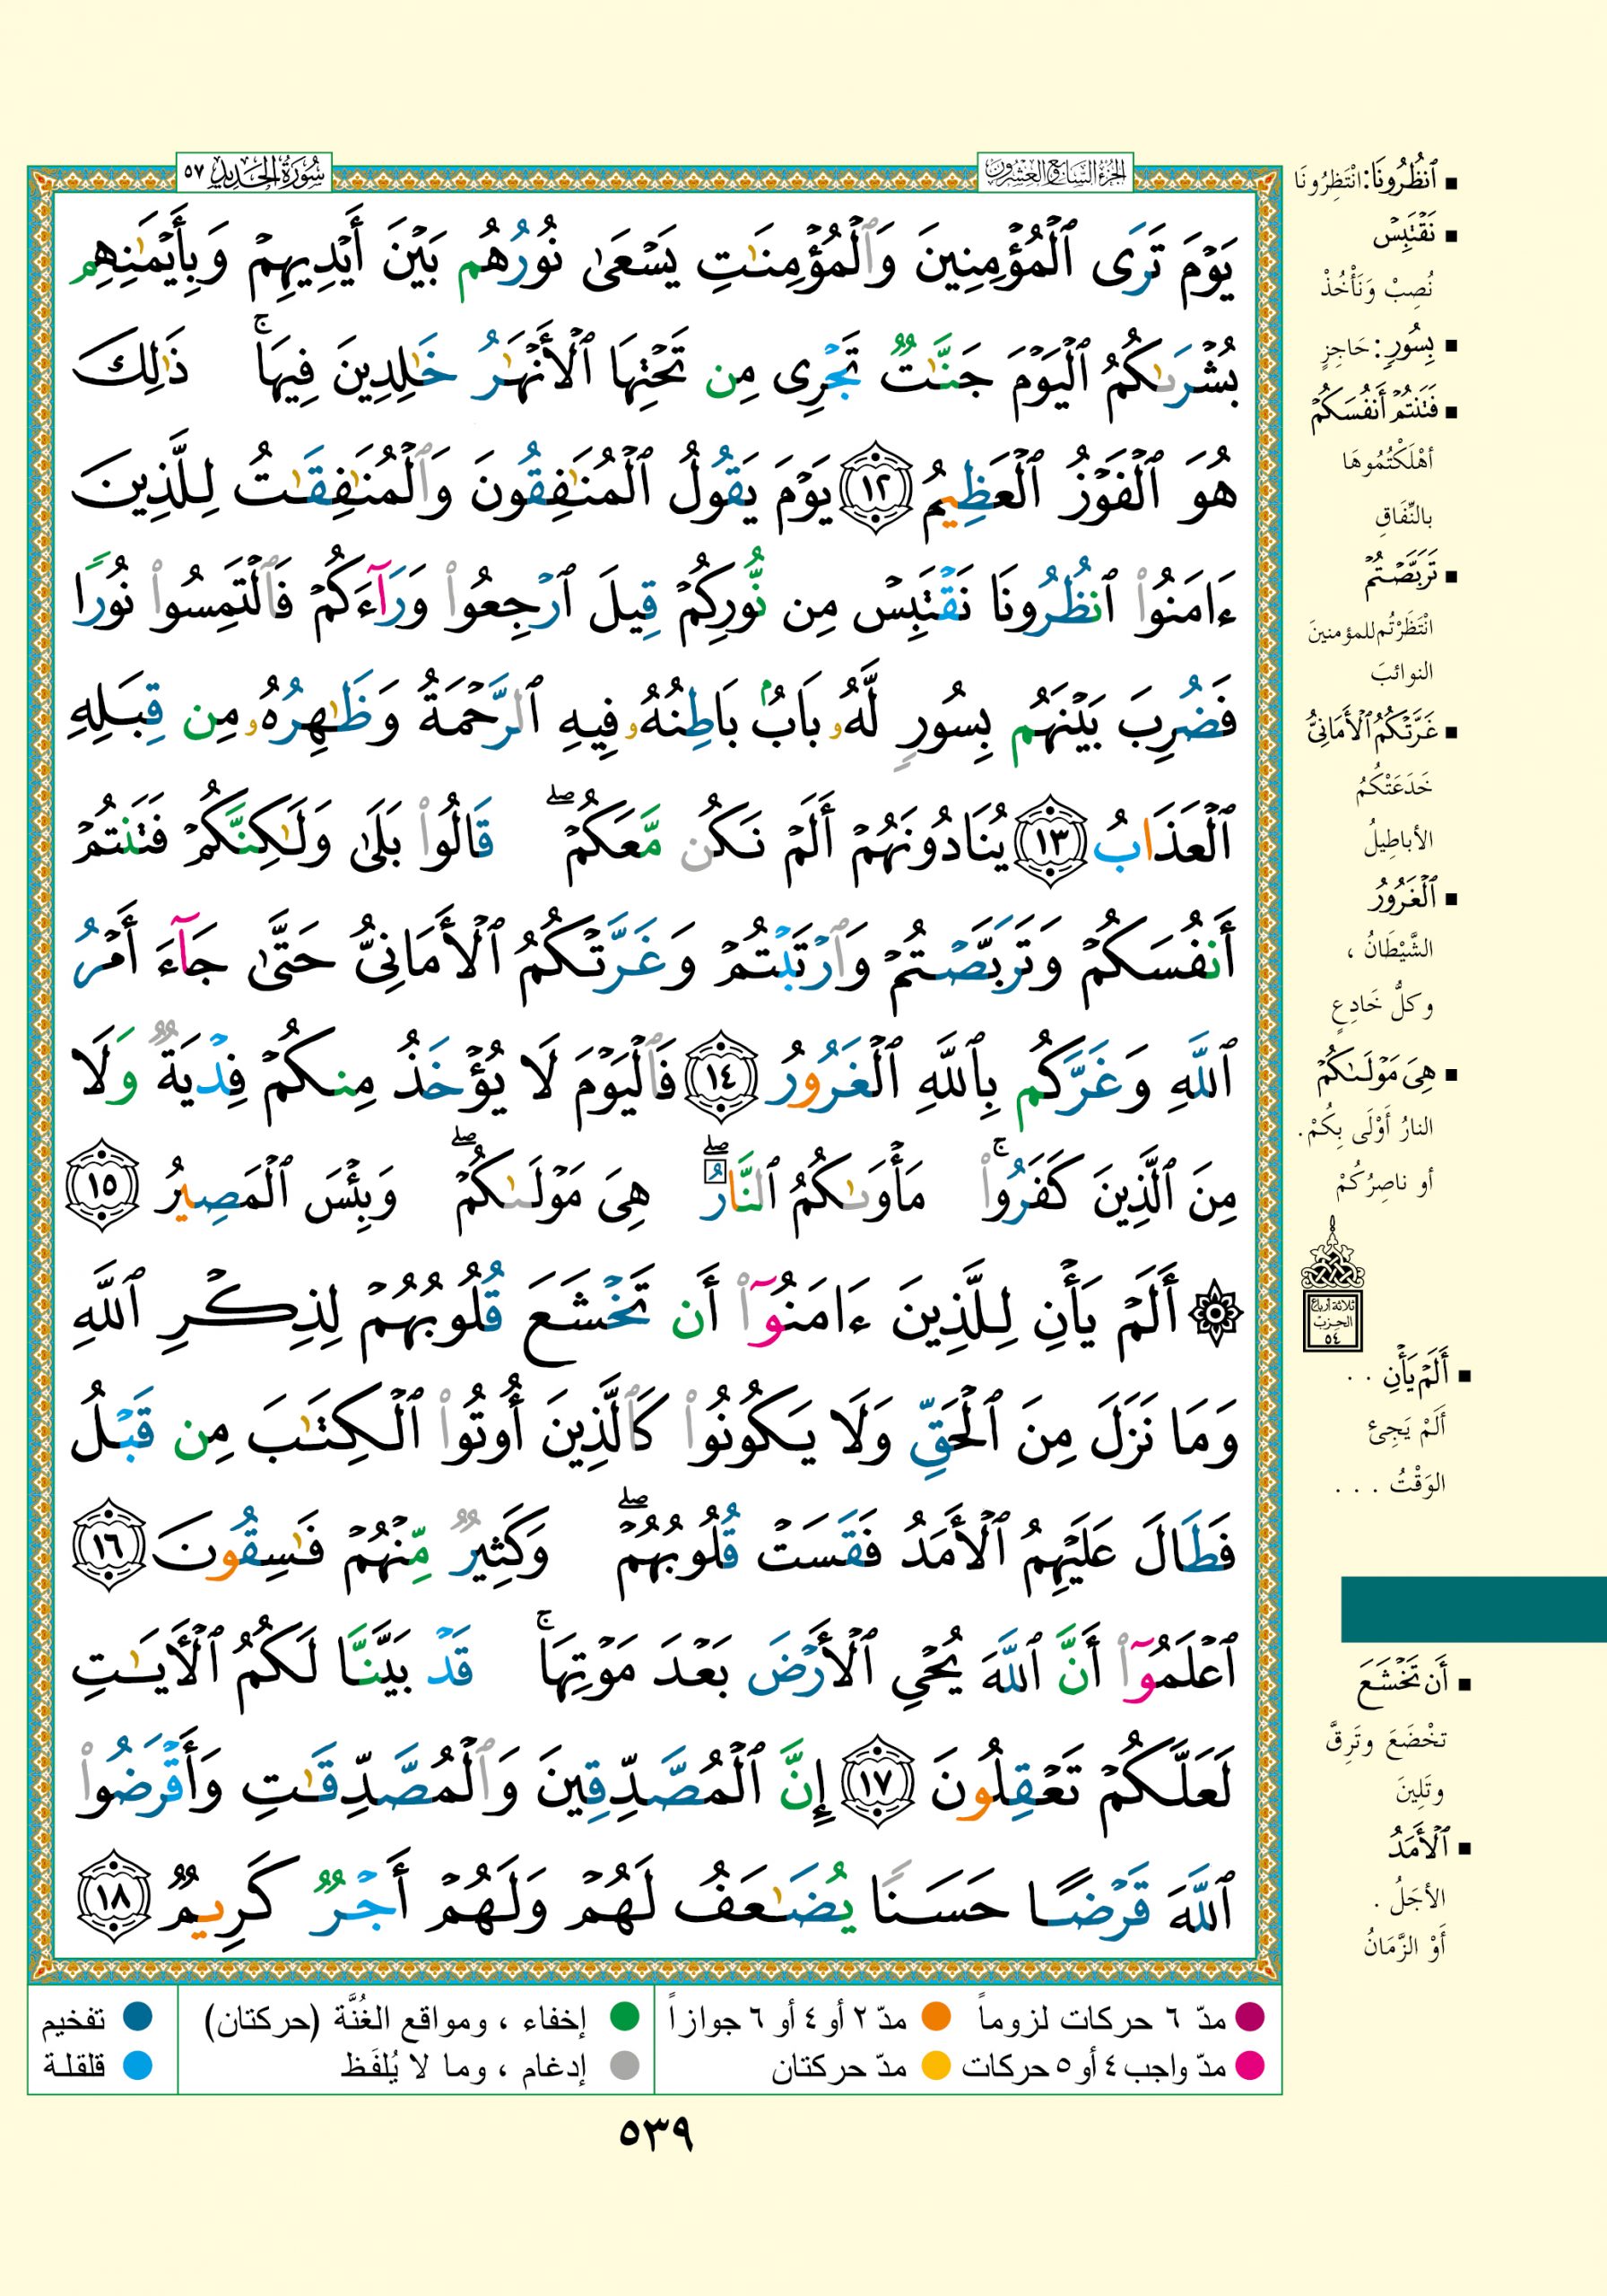 سُورَةُ الحَدِيدِ ٥٧
الجُزْءُ السَّابِعُ وَالعِشْرُونَ
يَوْمَ تَرَى ٱلْمُؤْمِنِينَ وَٱلْمُؤْمِنَٰتِ يَسْعَىٰ نُورُهُم بَيْنَ أَيْدِيهِمْ وَبِأَيْمَٰنِهِم
بُشْرَىٰكُمُ ٱلْيَوْمَ جَنَّٰتٌ تَجْرِى مِن تَحْتِهَا ٱلْأَنْهَٰرُ خَٰلِدِينَ فِيهَا ۚ ذَٰلِكَ
هُوَ ٱلْفَوْزُ ٱلْعَظِيمُ ١٢ يَوْمَ يَقُولُ ٱلْمُنَٰفِقُونَ وَٱلْمُنَٰفِقَٰتُ لِلَّذِينَ
ءَامَنُوا۟ ٱنظُرُونَا نَقْتَبِسْ مِن نُّورِكُمْ قِيلَ ٱرْجِعُوا۟ وَرَآءَكُمْ فَٱلْتَمِسُوا۟ نُورًا
فَضُرِبَ بَيْنَهُم بِسُورٍ لَّهُۥ بَابٌۢ بَاطِنُهُۥ فِيهِ ٱلرَّحْمَةُ وَظَٰهِرُهُۥ مِن قِبَلِهِ
ٱلْعَذَابُ ١٣ يُنَادُونَهُمْ أَلَمْ نَكُن مَّعَكُمْ ۖ قَالُوا۟ بَلَىٰ وَلَٰكِنَّكُمْ فَتَنتُمْ
أَنفُسَكُمْ وَتَرَبَّصْتُمْ وَٱرْتَبْتُمْ وَغَرَّتْكُمُ ٱلْأَمَانِىُّ حَتَّىٰ جَآءَ أَمْرُ
ٱللَّهِ وَغَرَّكُم بِٱللَّهِ ٱلْغَرُورُ ١٤ فَٱلْيَوْمَ لَا يُؤْخَذُ مِنكُمْ فِدْيَةٌ وَلَا
مِنَ ٱلَّذِينَ كَفَرُوا۟ ۚ مَأْوَىٰكُمُ ٱلنَّارُ ۖ هِىَ مَوْلَىٰكُمْ ۖ وَبِئْسَ ٱلْمَصِيرُ ١٥
۞ أَلَمْ يَأْنِ لِلَّذِينَ ءَامَنُوٓا۟ أَن تَخْشَعَ قُلُوبُهُمْ لِذِكْرِ ٱللَّهِ
وَمَا نَزَلَ مِنَ ٱلْحَقِّ وَلَا يَكُونُوا۟ كَٱلَّذِينَ أُوتُوا۟ ٱلْكِتَٰبَ مِن قَبْلُ
فَطَالَ عَلَيْهِمُ ٱلْأَمَدُ فَقَسَتْ قُلُوبُهُمْ ۖ وَكَثِيرٌ مِّنْهُمْ فَٰسِقُونَ ١٦
ٱعْلَمُوٓا۟ أَنَّ ٱللَّهَ يُحْىِ ٱلْأَرْضَ بَعْدَ مَوْتِهَا ۚ قَدْ بَيَّنَّا لَكُمُ ٱلْءَايَٰتِ
لَعَلَّكُمْ تَعْقِلُونَ ١٧ إِنَّ ٱلْمُصَّدِّقِينَ وَٱلْمُصَّدِّقَٰتِ وَأَقْرَضُوا۟
ٱللَّهَ قَرْضًا حَسَنًا يُضَٰعَفُ لَهُمْ وَلَهُمْ أَجْرٌ كَرِيمٌ ١٨
■ ٱنظُرُونَا: انْتَظِرُونَا
■ نَقْتَبِسْ
نُصِبْ وَنَأْخُذْ
■ بِسُورٍ: حَاجِزٍ
■ فَتَنتُمْ أَنفُسَكُمْ
أهْلَكْتُمُوهَا
بالنِّفَاقِ
■ تَرَبَّصْتُمْ
انْتَظَرْتُم للمؤمنينَ
النوائبَ
■ غَرَّتْكُمُ ٱلْأَمَانِىُّ
خَدَعَتْكُمُ
الأباطِيلُ
■ ٱلْغَرُورُ
الشَّيْطَانُ ،
وكلُّ خَادِعٍ
■ هِىَ مَوْلَىٰكُمْ
النارُ أَوْلَى بِكُمْ .
أو ناصِرُكُمْ
ثلاثة أرباع
الحزب
٥٤
■ أَلَمْ يَأْنِ . .
أَلَمْ يَجِئ
الوَقْتُ . . .
■ أَن تَخْشَعَ
تخْضَعَ وتَرِقَّ
وتَلِينَ
■ ٱلْأَمَدُ
الأجَلُ .
أَوْ الزَّمَانُ
مدّ ٦ حركات لزوماً مدّ ٢ أو ٤ أو ٦ جوازاً إخفاء ، ومواقع الغُنَّة (حركتان) تفخيم
مدّ واجب ٤ أو ٥ حركات مدّ حركتان إدغام ، وما لا يُلفَظ قلقلة
٥٣٩